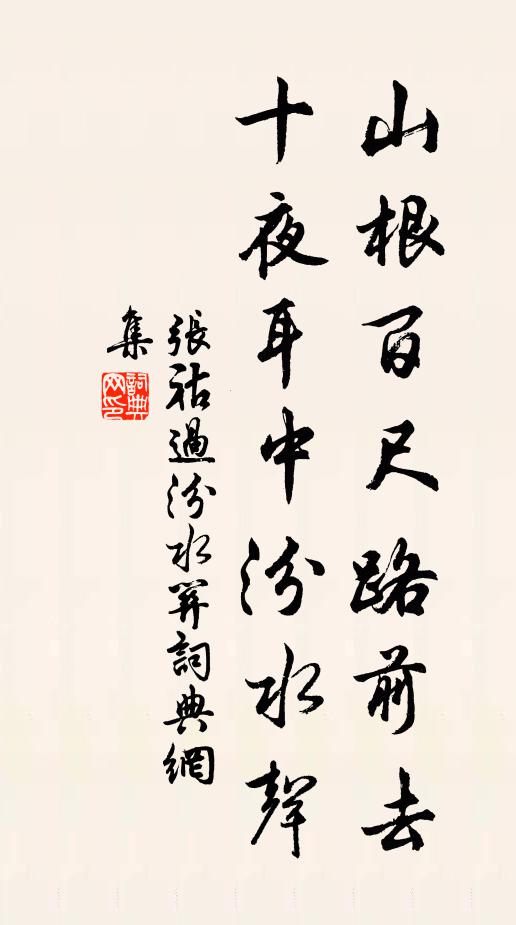 山根百尺路前去
十夜耳中汾水聲
張祜過汾水關詞典網
集
詞典
网印